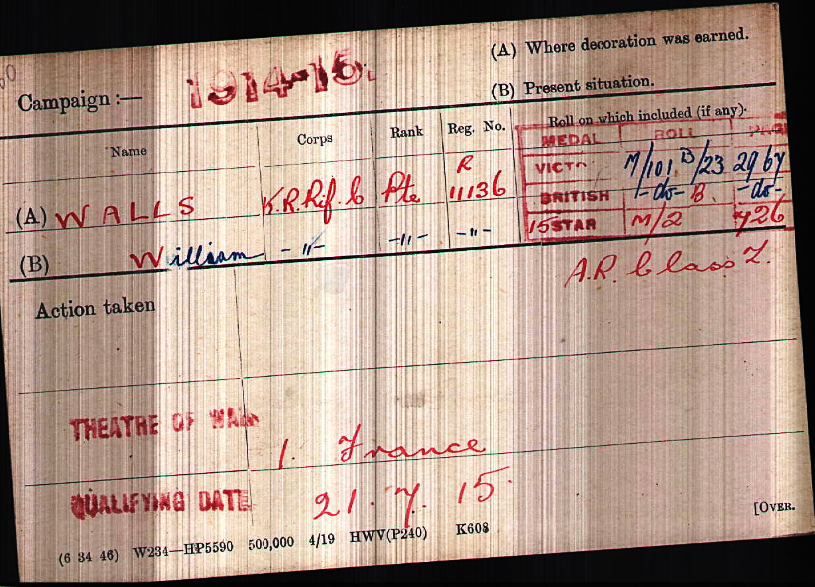 (A) Where decoration was earned.
(B) Present situation.
Campaign :— 1914-15.
Name Corps Rank Reg. No. Roll on which included (if any).
MEDAL ROLL PAGE
(A) WALLS K.R.Rif. C Pte R 11136 VICT M/101 B/23 2967
BRITISH -do- B. -do-
15 STAR M/2 726
(B) William -"- -"- -"-
A.R. Class Z.
Action taken
THEATRE OF WAR
1. France
QUALIFYING DATE 21.7.15.
(6 34 46) W234—HP5590 500,000 4/19 HWV(P240) K608 [OVER.